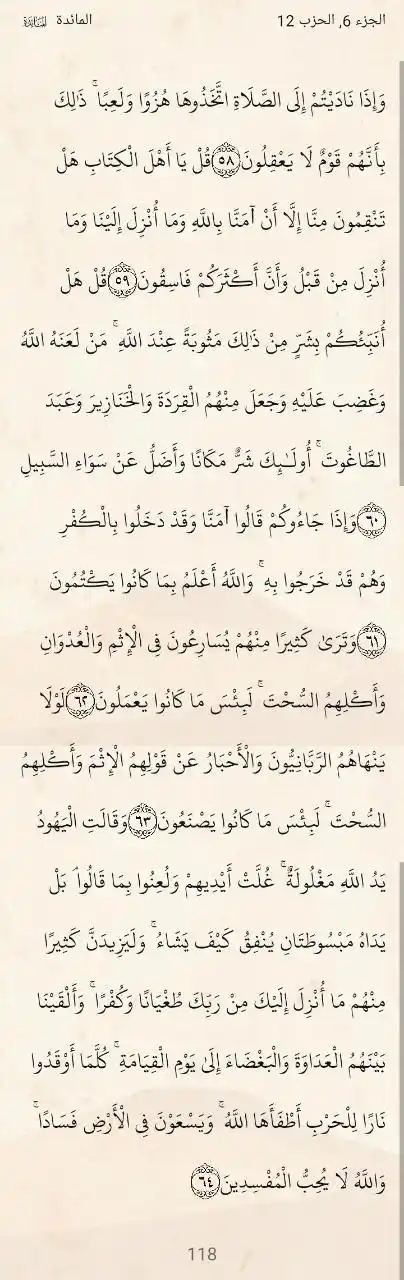 الجزء 6, الحزب 12 المائدة
وَإِذَا نَادَيْتُمْ إِلَى الصَّلَاةِ اتَّخَذُوهَا هُزُوًا وَلَعِبًا ۚ ذَٰلِكَ
بِأَنَّهُمْ قَوْمٌ لَا يَعْقِلُونَ ٥٨ قُلْ يَا أَهْلَ الْكِتَابِ هَلْ
تَنْقِمُونَ مِنَّا إِلَّا أَنْ آمَنَّا بِاللَّهِ وَمَا أُنْزِلَ إِلَيْنَا وَمَا
أُنْزِلَ مِنْ قَبْلُ وَأَنَّ أَكْثَرَكُمْ فَاسِقُونَ ٥٩ قُلْ هَلْ
أُنَبِّئُكُمْ بِشَرٍّ مِنْ ذَٰلِكَ مَثُوبَةً عِنْدَ اللَّهِ ۚ مَنْ لَعَنَهُ اللَّهُ
وَغَضِبَ عَلَيْهِ وَجَعَلَ مِنْهُمُ الْقِرَدَةَ وَالْخَنَازِيرَ وَعَبَدَ
الطَّاغُوتَ ۚ أُولَٰئِكَ شَرٌّ مَكَانًا وَأَضَلُّ عَنْ سَوَاءِ السَّبِيلِ
٦٠ وَإِذَا جَاءُوكُمْ قَالُوا آمَنَّا وَقَدْ دَخَلُوا بِالْكُفْرِ
وَهُمْ قَدْ خَرَجُوا بِهِ ۚ وَاللَّهُ أَعْلَمُ بِمَا كَانُوا يَكْتُمُونَ
٦١ وَتَرَىٰ كَثِيرًا مِنْهُمْ يُسَارِعُونَ فِي الْإِثْمِ وَالْعُدْوَانِ
وَأَكْلِهِمُ السُّحْتَ ۚ لَبِئْسَ مَا كَانُوا يَعْمَلُونَ ٦٢ لَوْلَا
يَنْهَاهُمُ الرَّبَّانِيُّونَ وَالْأَحْبَارُ عَنْ قَوْلِهِمُ الْإِثْمَ وَأَكْلِهِمُ
السُّحْتَ ۚ لَبِئْسَ مَا كَانُوا يَصْنَعُونَ ٦٣ وَقَالَتِ الْيَهُودُ
يَدُ اللَّهِ مَغْلُولَةٌ ۚ غُلَّتْ أَيْدِيهِمْ وَلُعِنُوا بِمَا قَالُوا ۘ بَلْ
يَدَاهُ مَبْسُوطَتَانِ يُنْفِقُ كَيْفَ يَشَاءُ ۚ وَلَيَزِيدَنَّ كَثِيرًا
مِنْهُمْ مَا أُنْزِلَ إِلَيْكَ مِنْ رَبِّكَ طُغْيَانًا وَكُفْرًا ۚ وَأَلْقَيْنَا
بَيْنَهُمُ الْعَدَاوَةَ وَالْبَغْضَاءَ إِلَىٰ يَوْمِ الْقِيَامَةِ ۚ كُلَّمَا أَوْقَدُوا
نَارًا لِلْحَرْبِ أَطْفَأَهَا اللَّهُ ۚ وَيَسْعَوْنَ فِي الْأَرْضِ فَسَادًا ۚ
وَاللَّهُ لَا يُحِبُّ الْمُفْسِدِينَ ٦٤
118